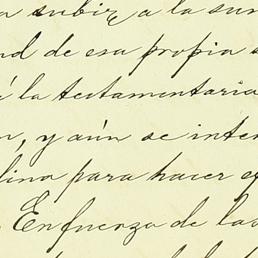 a subir a la sum
nd de esa propia s
á la testamentaria
n, y aún se inter
lino para hacer ef
En fuerza de las